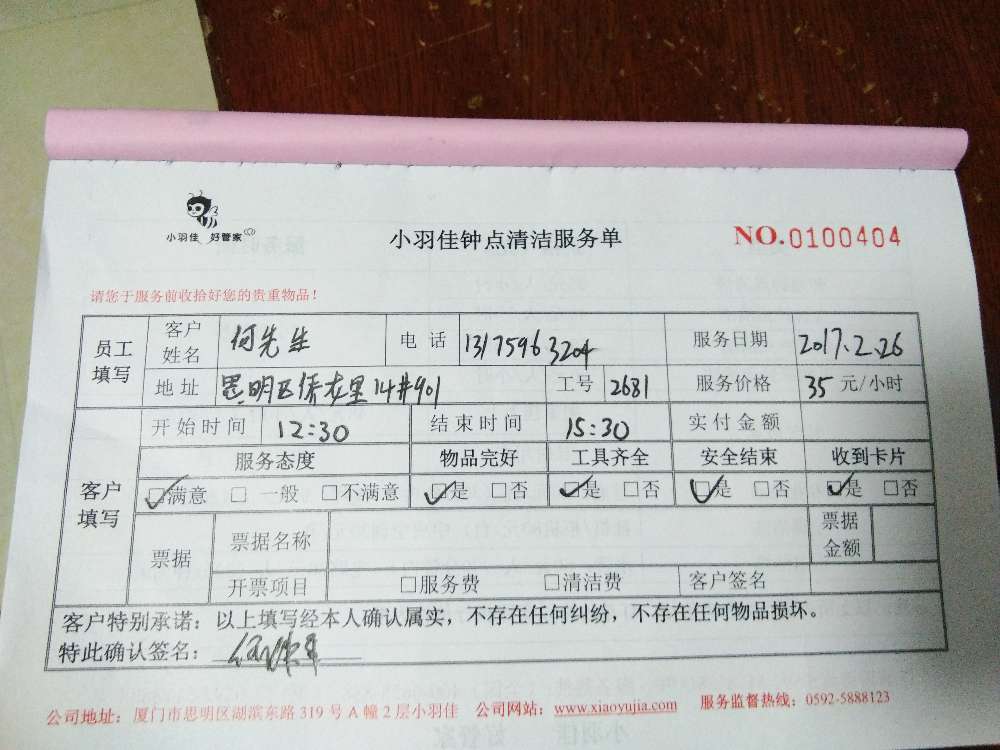 小羽佳 好管家
小羽佳钟点清洁服务单
NO.0100404
请您于服务前收拾好您的贵重物品！
员工填写 客户姓名 何先生 电话 13175963204 服务日期 2017.2.26
地址 思明区侨龙里14#901 工号 2681 服务价格 35 元/小时
客户填写 开始时间 12:30 结束时间 15:30 实付金额
服务态度 物品完好 工具齐全 安全结束 收到卡片
☑满意 □一般 □不满意 ☑是 □否 ☑是 □否 ☑是 □否 ☑是 □否
票据 票据名称 票据金额
开票项目 □服务费 □清洁费 客户签名
客户特别承诺：以上填写经本人确认属实，不存在任何纠纷，不存在任何物品损坏。
特此确认签名：
公司地址：厦门市思明区湖滨东路 319 号 A 幢 2 层小羽佳 公司网站：www.xiaoyujia.com 服务监督热线：0592-5888123